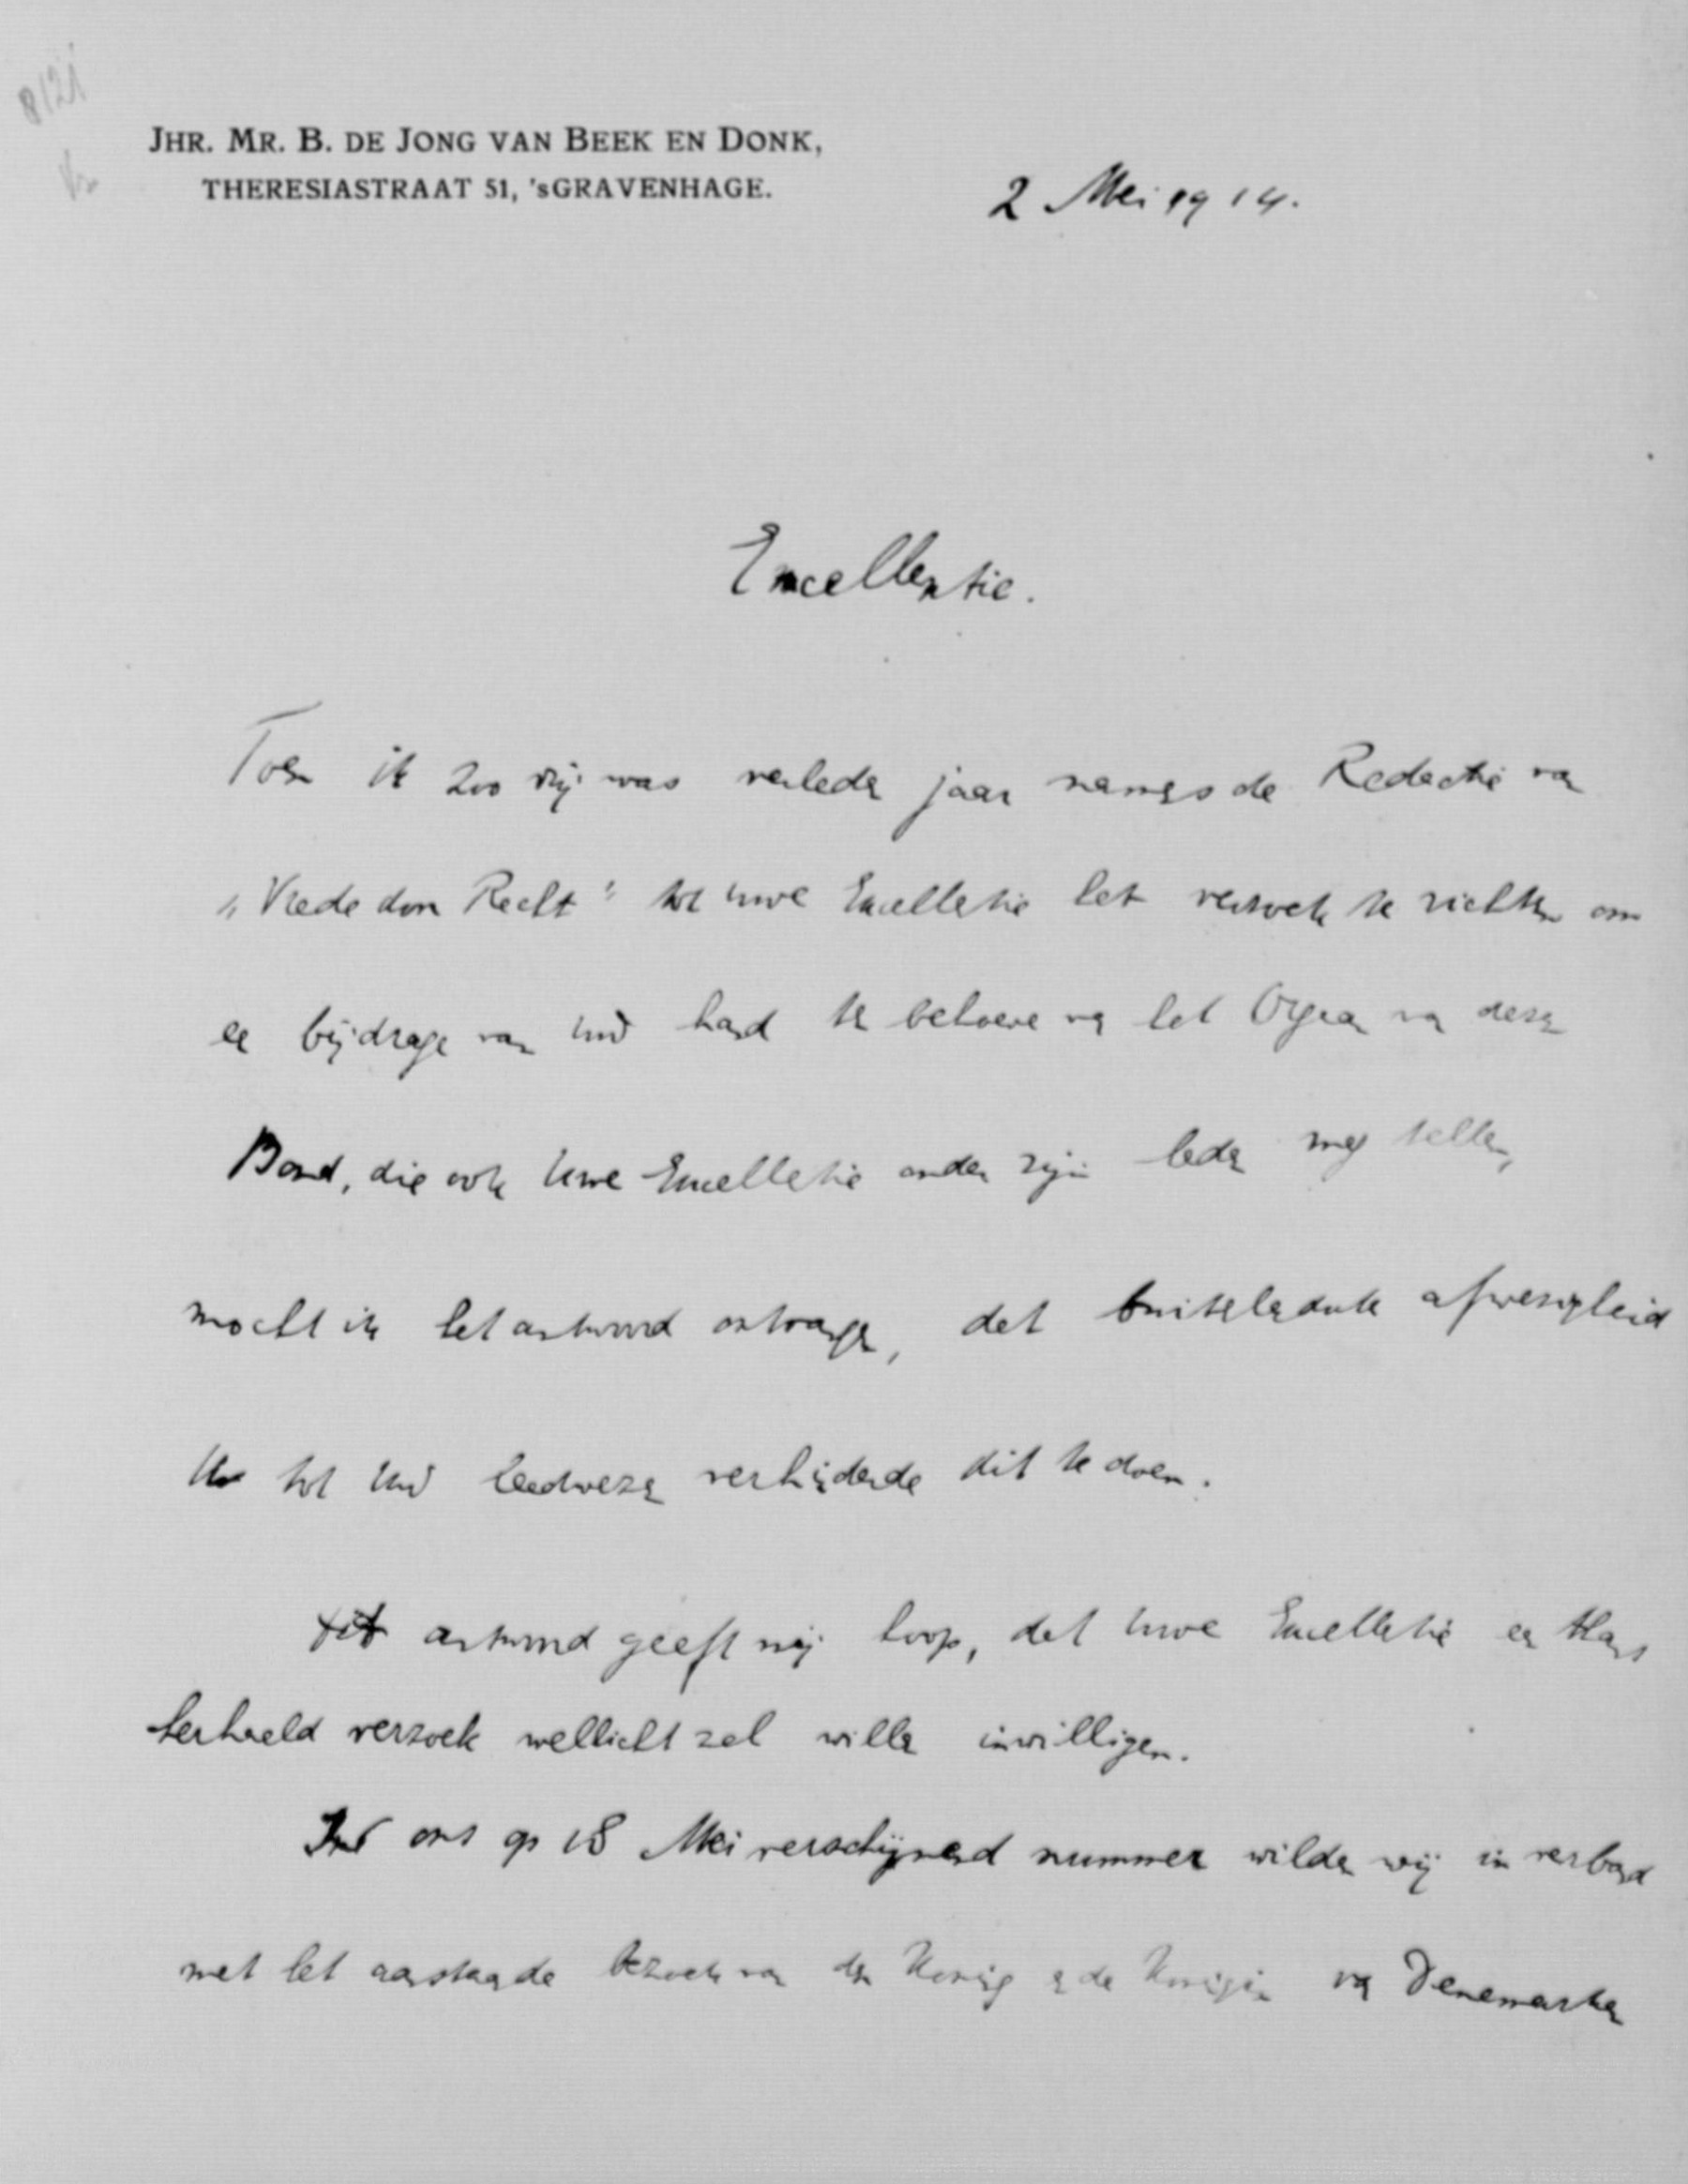 8121
JHR. MR. B. DE JONG VAN BEEK EN DONK,
THERESIASTRAAT 51, 'sGRAVENHAGE.
2 Mei 1914.
Excellentie.
Toen ik zoo vrij was verleden jaar namens de Redactie van
"Vrede door Recht" tot Uwe Excellentie het verzoek te richten om
een bijdrage van Uw hand te behoeve van het Orgaan van deze
Bond, die ook Uwe Excellentie onder zijn leden mag tellen,
mocht ik het antwoord ontvangen, dat buitenlandsche afwezigheid
U tot Uw leedwezen verhinderde dit te doen.
Dit antwoord geeft mij hoop, dat Uwe Excellentie een thans
herhaald verzoek wellicht zal willen inwilligen.
In ons op 18 Mei verschijnend nummer wilden wij in verband
met het aanstaande bezoek van den Koning en de Koningin van Denemarken